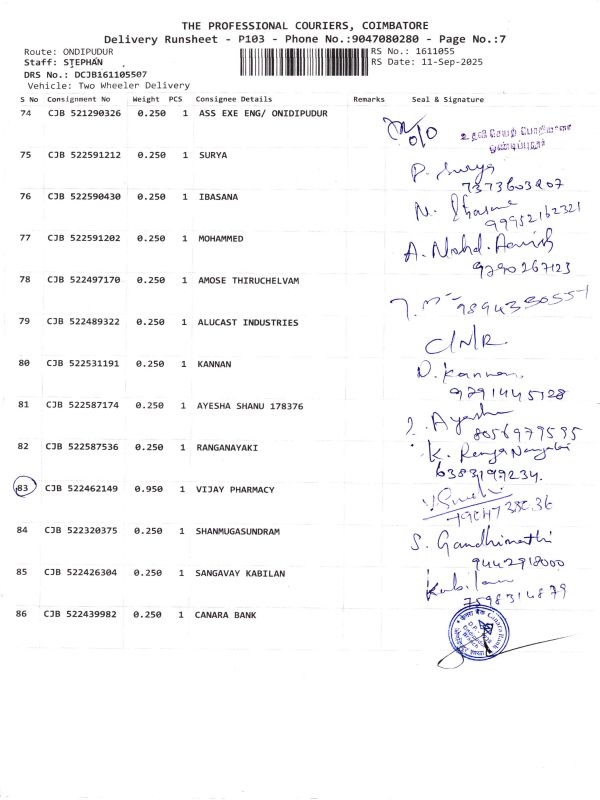 THE PROFESSIONAL COURIERS, COIMBATORE
Delivery Runsheet - P103 - Phone No.:9047080280 - Page No.:7
Route: ONDIPUDUR RS No.: 1611055
Staff: STEPHAN RS Date: 11-Sep-2025
DRS No.: DCJB161105507
Vehicle: Two Wheeler Delivery
S No Consignment No Weight PCS Consignee Details Remarks Seal & Signature
74 CJB 521290326 0.250 1 ASS EXE ENG/ ONIDIPUDUR
75 CJB 522591212 0.250 1 SURYA P. Surya
7373603207
76 CJB 522590430 0.250 1 IBASANA
99952162321
77 CJB 522591202 0.250 1 MOHAMMED A. Mohd.
9790267123
78 CJB 522497170 0.250 1 AMOSE THIRUCHELVAM
79 CJB 522489322 0.250 1 ALUCAST INDUSTRIES
80 CJB 522531191 0.250 1 KANNAN D. Kannan
9791445128
81 CJB 522587174 0.250 1 AYESHA SHANU 178376 Ayesha
8056979595
82 CJB 522587536 0.250 1 RANGANAYAKI K. Ranganayaki
6383199234.
83 CJB 522462149 0.950 1 VIJAY PHARMACY
84 CJB 522320375 0.250 1 SHANMUGASUNDRAM S. Gandhimathi
9442918000
85 CJB 522426304 0.250 1 SANGAVAY KABILAN Kabilan
7598314879
86 CJB 522439982 0.250 1 CANARA BANK Canara Bank